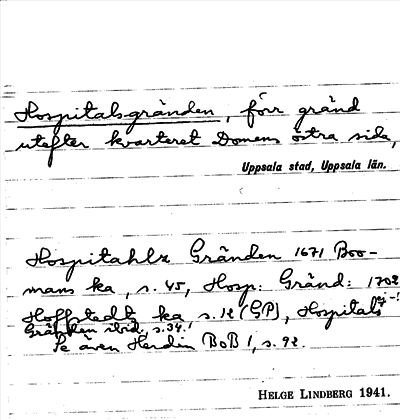 Hospitalsgränden, förr gränd
utefter kvarteret Domens östra sida,
Uppsala stad, Uppsala län.
Hospitahlz Gränden 1671 Boo-
mans ka, s. 45, Hosp: Gränd: 1702
Hoffstedt ka s. 12 (GP), Hospitals
Gränden ibid. s. 34.
Se även Herdin BoB 1, s. 92.
HELGE LINDBERG 1941.